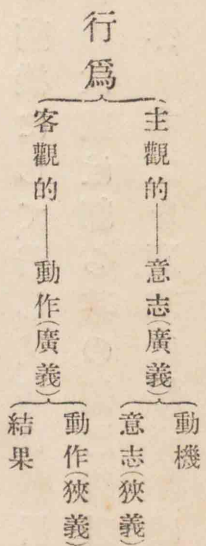 行爲
主觀的——意志(廣義)
動機
意志(狹義)
客觀的——動作(廣義)
動作(狹義)
結果